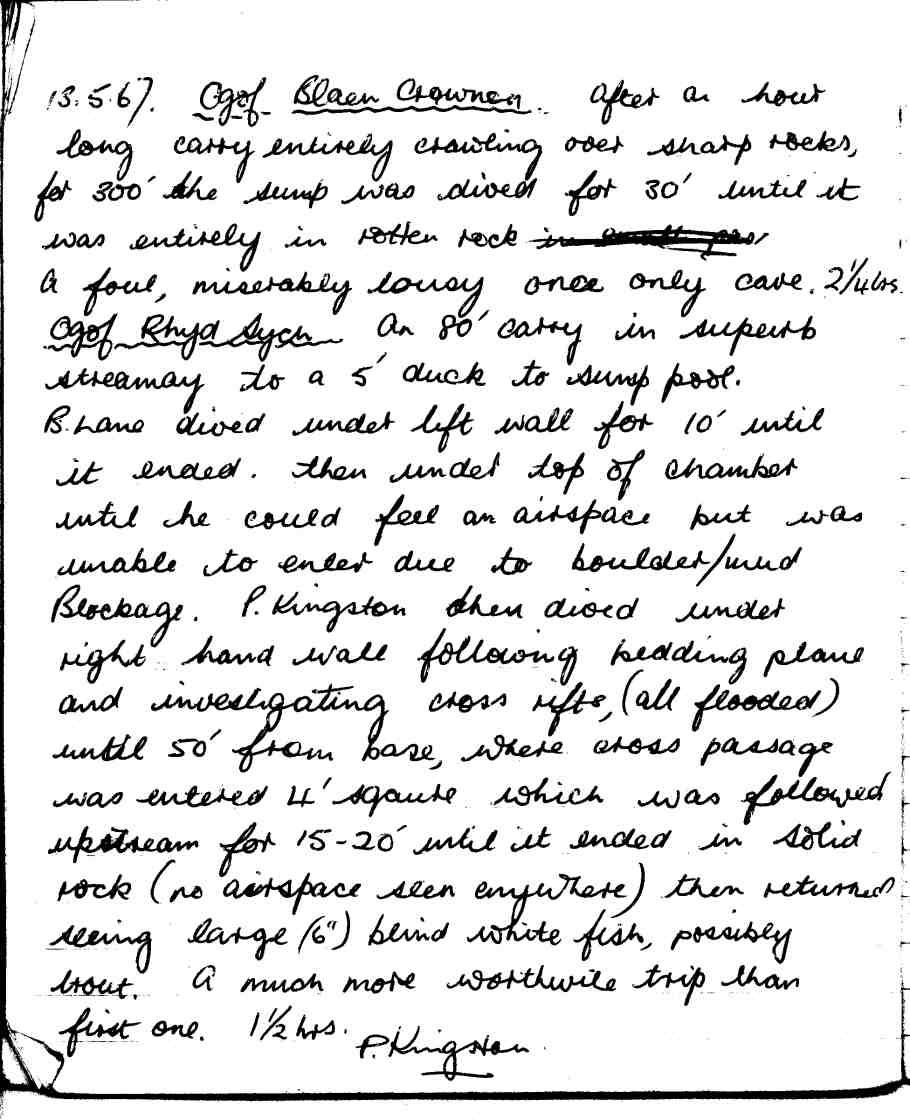 13.5.67. Ogof Blaen Crownen. After an hour
long carry entirely crawling over sharp rocks,
for 300' the sump was dived for 30' until it
was entirely in rotten rock in small pas
A foul, miserably lousy once only cave. 2¼hrs.
Ogof Rhyd Sych An 80' carry in superb
streamay to a 5' duck to sump pool.
B. Lane dived under left wall for 10' until
it ended. then under top of chamber
until he could feel an airspace but was
unable to enter due to boulder/mud
Blockage. P. Kingston then dived under
right hand wall following bedding plane
and investigating cross rifts, (all flooded)
until 50' from base, where cross passage
was entered 4' sqaure which was followed
upstream for 15-20' until it ended in solid
rock (no airspace seen anywhere) then returned
seeing large (6") blind white fish, possibly
trout. A much more worthwile trip than
first one. 1½ hrs.
P. Kingston